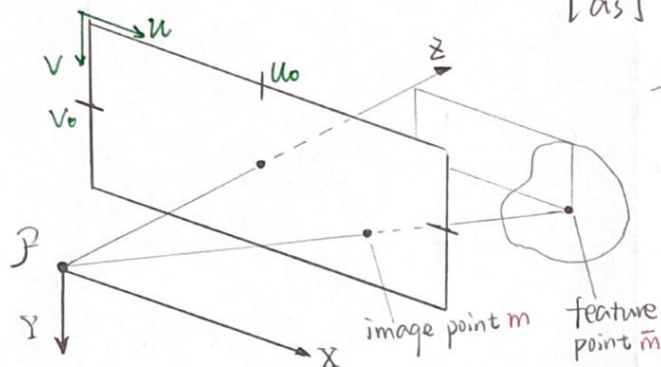 [as]
u
v
u₀
v₀
Z
Y
X
image point m
feature
point m̄